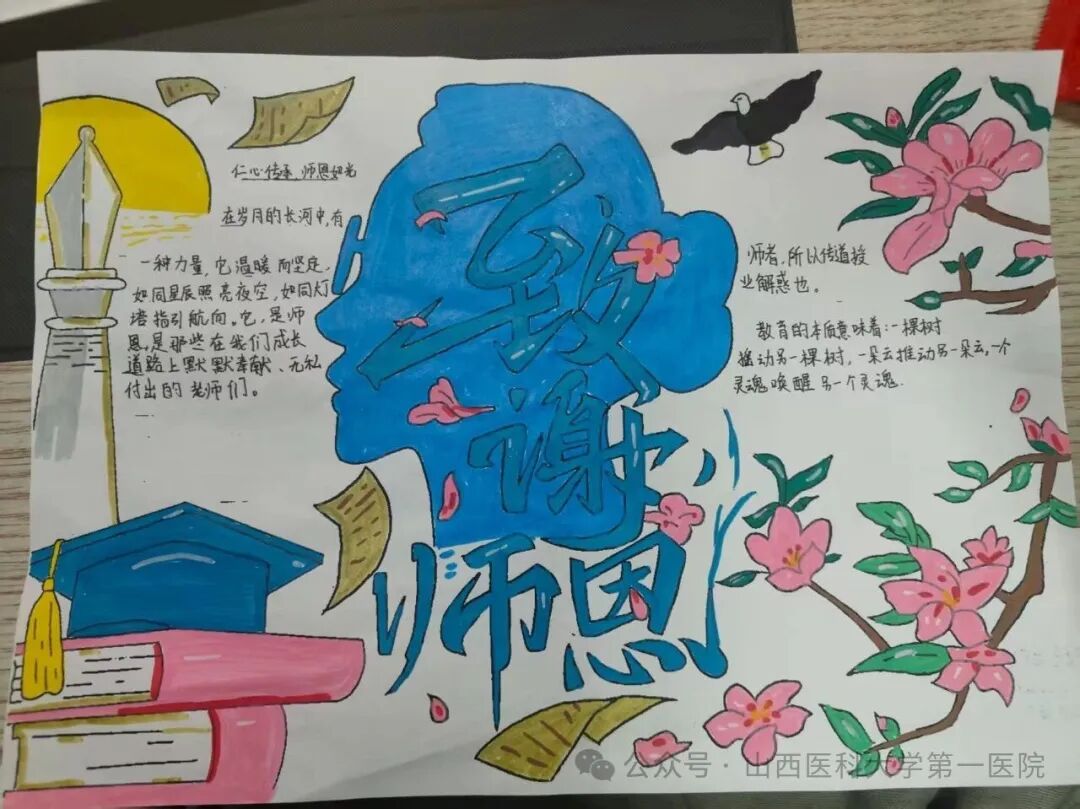 仁心传承 师恩如光
在岁月的长河中,有
一种力量,它温暖而坚定,
如同星辰照亮夜空,如同灯
塔指引航向。它,是师
恩,是那些在我们成长
道路上默默奉献、无私
付出的老师们。
致谢
师恩
师者,所以传道授
业解惑也。
教育的本质意味着:一棵树
摇动另一棵树,一朵云推动另一朵云,一个
灵魂唤醒另一个灵魂.
公众号·山西医科大学第一医院